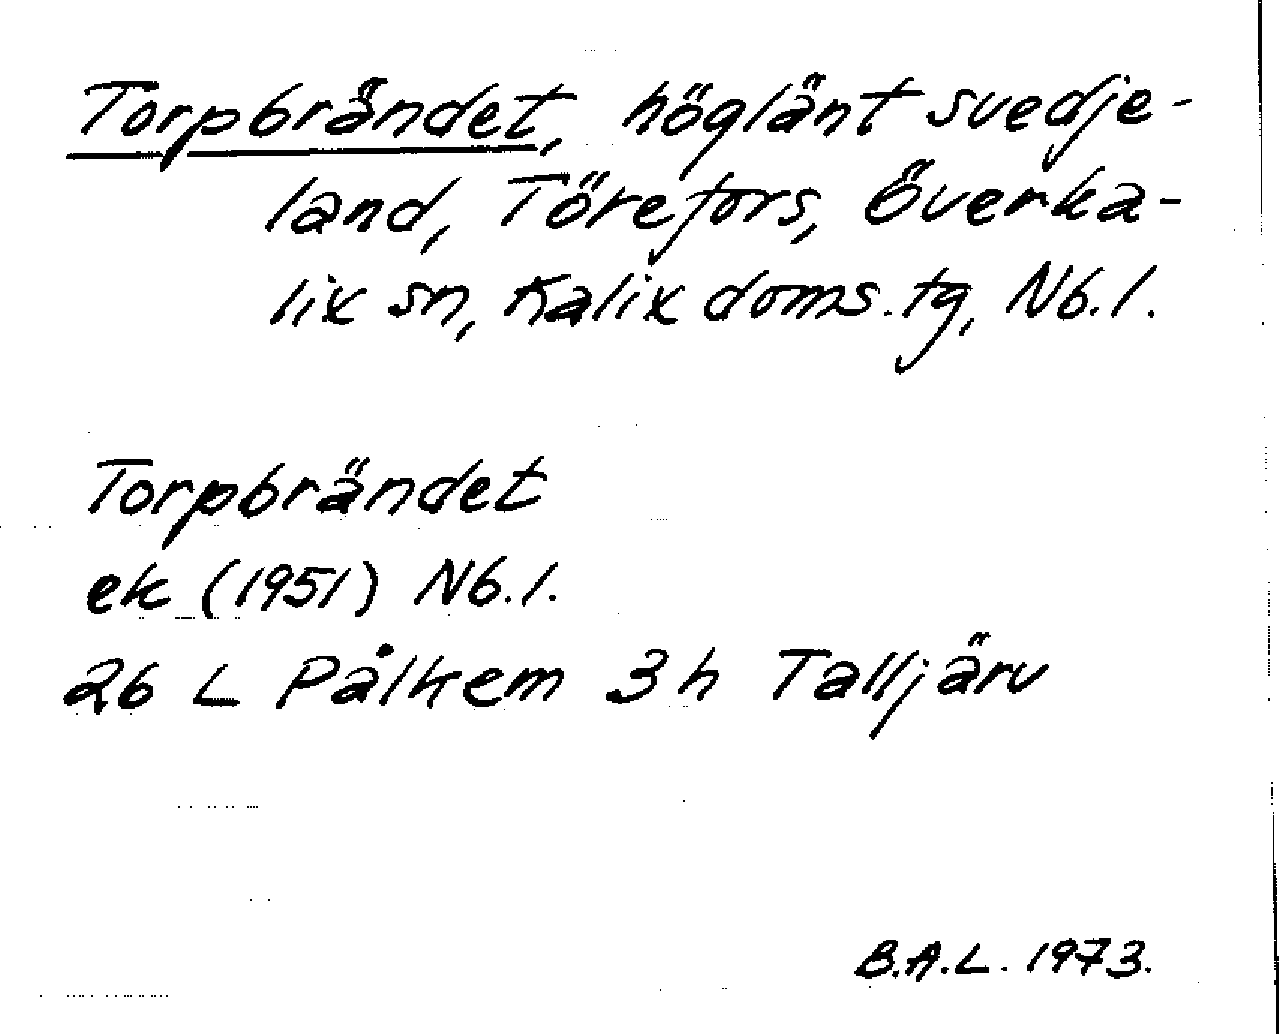 Torpbrändet, höglänt svedje-
land, Törefors, Överka-
lix sn, Kalix doms.tg, Nb.l.
Torpbrändet
ek (1951) Nb.l.
26 L Pålkem 3h Talljärv
B.A.L. 1973.